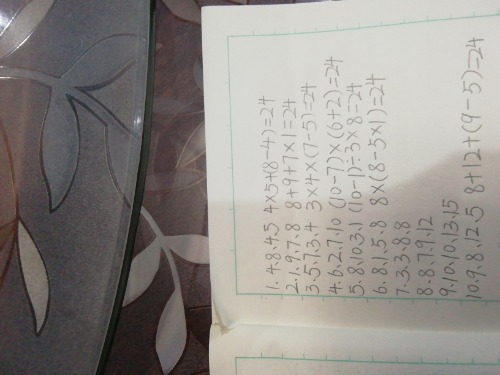 1.4.8.4.5 4×5+(8-4)=24
2.1.9.7.8 8+9+7×1=24
3.5.7.3.4 3×4×(7-5)=24
4.6.2.7.10 (10-7)×(6+2)=24
5.8.10.3.1 (10-1)÷3×8=24
6.8.1.5.8 8×(8-5×1)=24
7.3.3.8.8
8.8.7.9.12
9.10.10.13.15
10.9.8.12.5 8+12+(9-5)=24